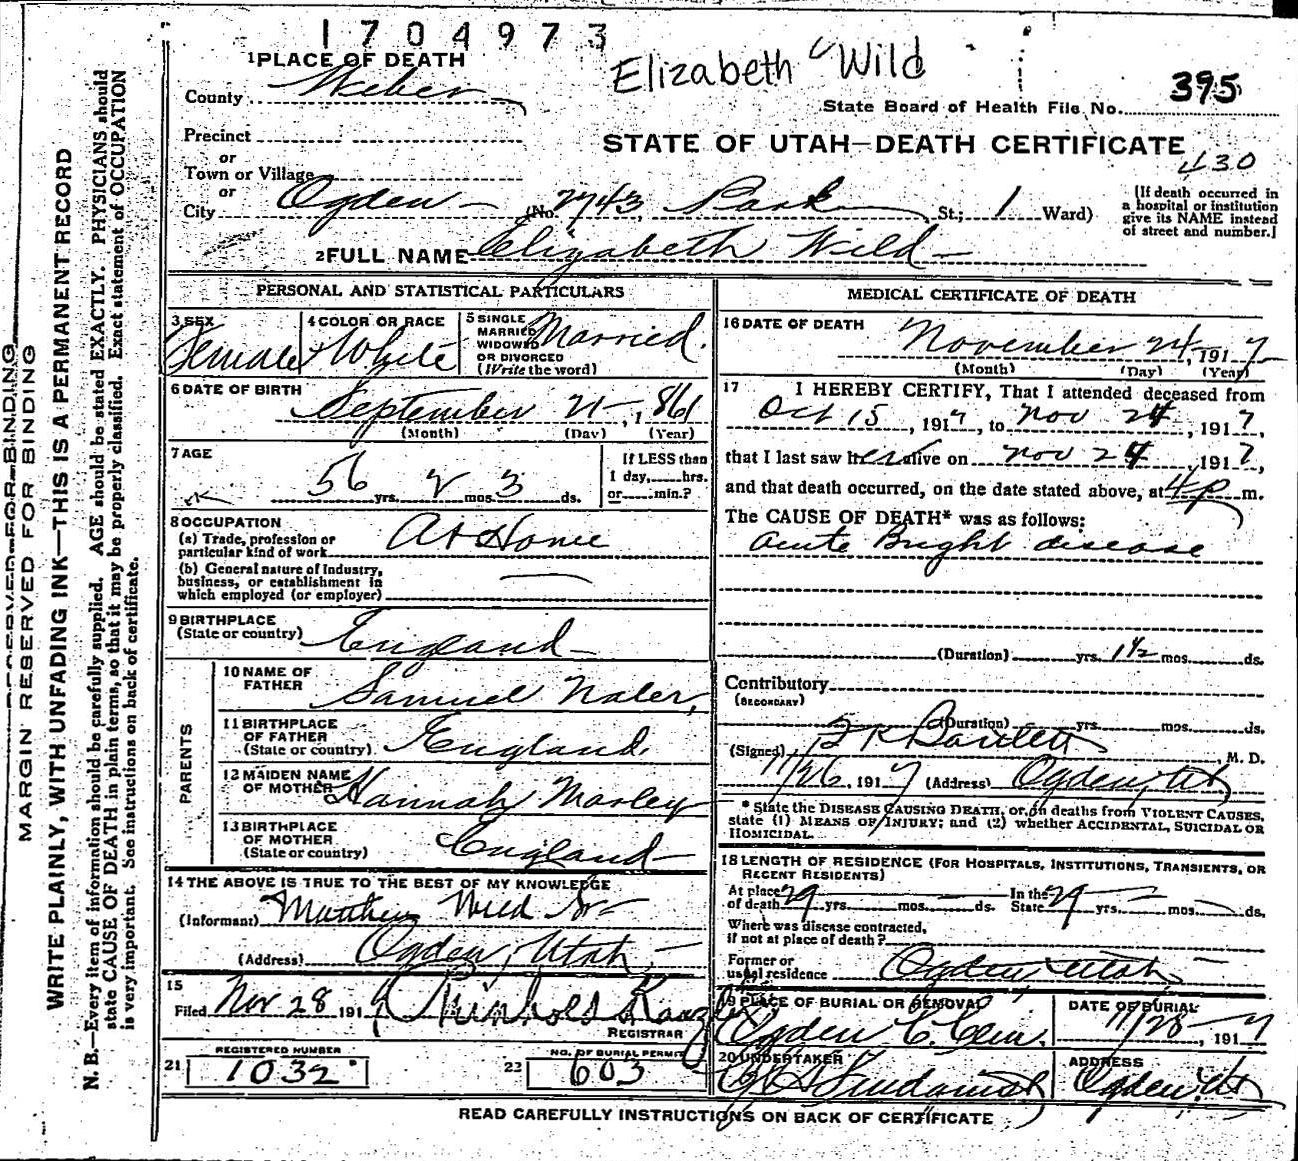 1704973
Elizabeth Wild
395
State Board of Health File No.
1 PLACE OF DEATH
County Weber
Precinct
or
Town or Village
or
City Ogden (No. 2743 Park St.; 1 Ward)
STATE OF UTAH—DEATH CERTIFICATE
430
[If death occurred in
a hospital or institution
give its NAME instead
of street and number.]
2 FULL NAME Elizabeth Wild
PERSONAL AND STATISTICAL PARTICULARS
3 SEX
Female
4 COLOR OR RACE
White
5 SINGLE
MARRIED
WIDOWED
OR DIVORCED
(Write the word)
Married.
6 DATE OF BIRTH
September 21, 1861
(Month) (Day) (Year)
7 AGE
56 yrs. 2 mos. 3 ds.
If LESS than
1 day, hrs.
or min.?
8 OCCUPATION
(a) Trade, profession or
particular kind of work At Home
(b) General nature of Industry,
business, or establishment in
which employed (or employer)
9 BIRTHPLACE
(State or country) England
PARENTS
10 NAME OF
FATHER Samuel Naler,
11 BIRTHPLACE
OF FATHER
(State or country) England.
12 MAIDEN NAME
OF MOTHER Hannah Morley
13 BIRTHPLACE
OF MOTHER
(State or country) England
14 THE ABOVE IS TRUE TO THE BEST OF MY KNOWLEDGE
(Informant) Matthew Wild Sr
(Address) Ogden, Utah,
15
Filed Nov 28 191
REGISTRAR
21 REGISTERED NUMBER
1032
22 NO. OF BURIAL PERMIT
603
MEDICAL CERTIFICATE OF DEATH
16 DATE OF DEATH
November 24, 1917
(Month) (Day) (Year)
17 I HEREBY CERTIFY, That I attended deceased from
Oct 15, 1917, to Nov 24, 1917,
that I last saw her alive on Nov 24, 1917,
and that death occurred, on the date stated above, at 4 p m.
The CAUSE OF DEATH* was as follows:
Acute Bright disease
(Duration) yrs. 1½ mos. ds.
Contributory
(SECONDARY)
(Duration) yrs. mos. ds.
(Signed) Bartlett, M. D.
11/26, 1917 (Address) Ogden, Ut
* State the DISEASE CAUSING DEATH, or, in deaths from VIOLENT CAUSES,
state (1) MEANS OF INJURY; and (2) whether ACCIDENTAL, SUICIDAL OR
HOMICIDAL.
18 LENGTH OF RESIDENCE (FOR HOSPITALS, INSTITUTIONS, TRANSIENTS, OR
RECENT RESIDENTS)
At place
of death 29 yrs. mos. ds. In the
State 29 yrs. mos. ds.
Where was disease contracted,
if not at place of death?
Former or
usual residence Ogden, Utah
19 PLACE OF BURIAL OR REMOVAL
Ogden C. Cem.
DATE OF BURIAL
11/28, 1917
20 UNDERTAKER
ADDRESS
Ogden, Ut
READ CAREFULLY INSTRUCTIONS ON BACK OF CERTIFICATE
MARGIN RESERVED FOR BINDING
WRITE PLAINLY, WITH UNFADING INK—THIS IS A PERMANENT RECORD
N. B.—Every item of information should be carefully supplied. AGE should be stated EXACTLY. PHYSICIANS should
state CAUSE OF DEATH in plain terms, so that it may be properly classified. Exact statement of OCCUPATION
is very important. See instructions on back of certificate.